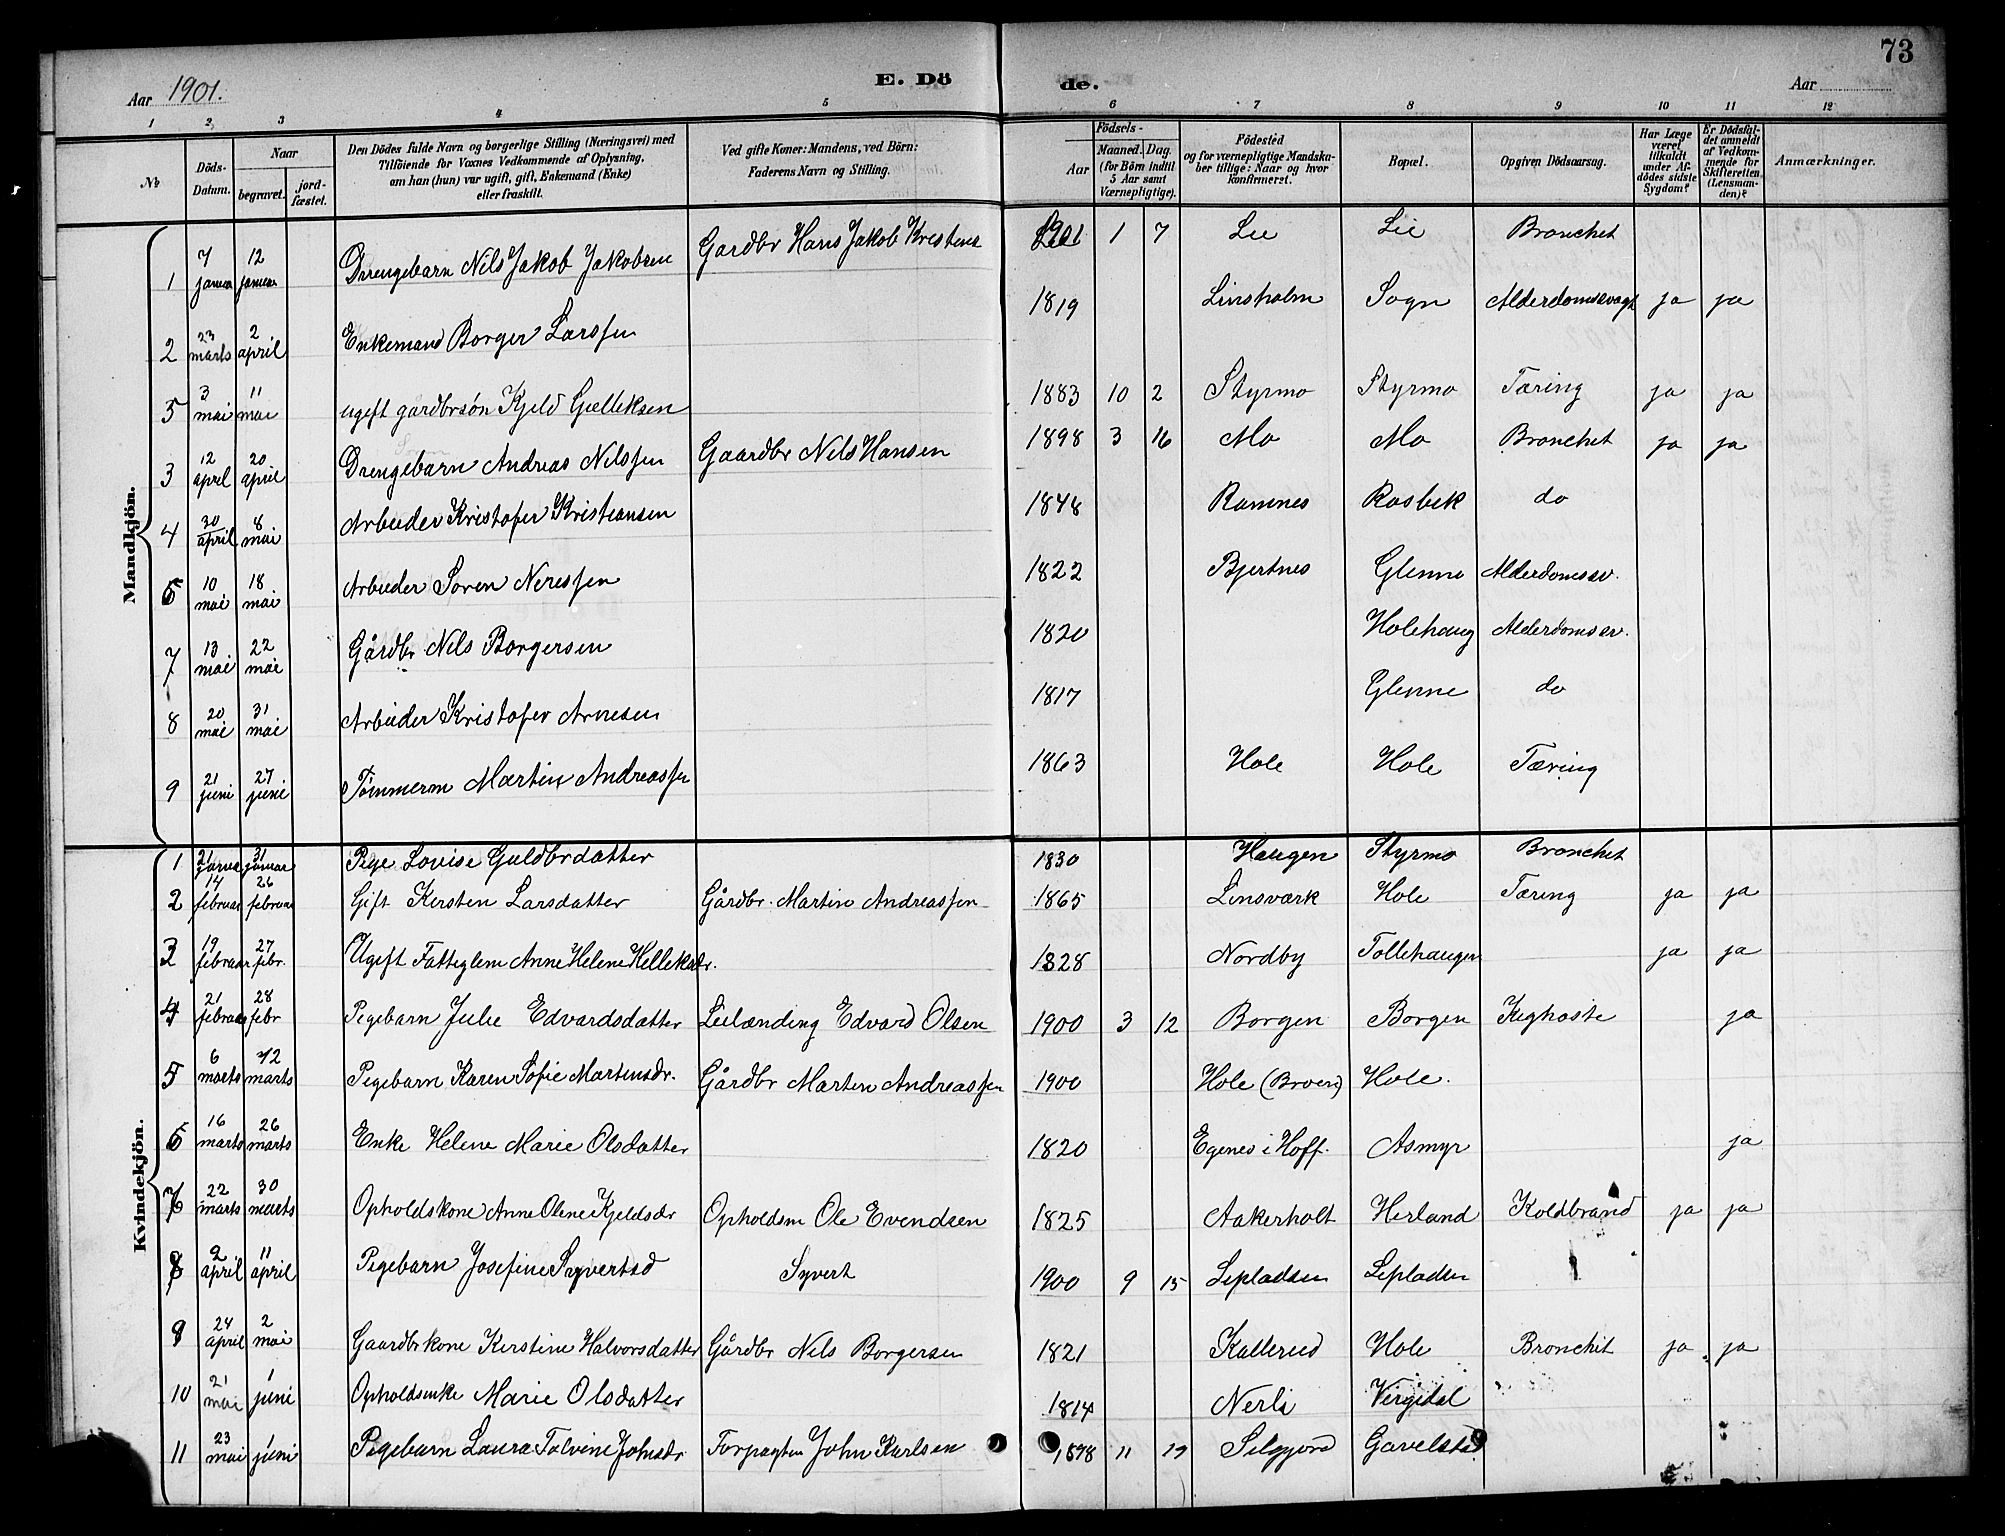 73
Aar 1901.
E. Dö de.
Aar
1 2 3 4 5 6 7 8 9 10 11 12
№
Döds-Datum.
Naar
begravet.
jordfæstet.
Den Dödes fulde Navn og borgerlige Stilling (Næringsvei) med Tilföiende for Voxnes Vedkommende af Oplysning, om han (hun) var ugift, gift, Enkemand (Enke) eller fraskilt.
Ved gifte Koner: Mandens, ved Börn: Faderens Navn og Stilling.
Födsels-
Aar
Maaned. Dag.
(for Börn indtil 5 Aar samt Værnepligtige).
Födested og for værnepligtige Mandskaber tillige: Naar og hvor konfirmeret.
Bopæl.
Opgiven Dödsaarsag.
Har Læge været tilkaldt under Afdödes sidste Sygdom?
Er Dödsfaldet anmeldt af Vedkommende for Skifteretten (Lensmanden)?
Anmærkninger.
Mandkjön.
1 7 januar 12 januar Drengebarn Nils Jakob Jakobsen Gardbr Hans Jakob Kristens 1901 1 7 Lie Lie Bronchit
2 23 marts 2 april Enkemand Borger Larssen 1819 Linsholm Sogn Alderdomssvagh ja ja
5 3 mai 11 mai ugift gårdbrsön Kjeld Gulleksen 1883 10 2 Styrmo Styrmo Tæring ja ja
3 12 april 20 april Drengebarn Andreas Nilssen Gaardbr Nils Hansen 1898 3 16 Mo Mo Bronchit ja ja
4 30 april 8 mai Arbeider Kristofer Kristiansen 1848 Ramnes Rosbek do
6 10 mai 18 mai Arbeider Soren Neressen 1822 Bjertnes Glenne Alderdomssv.
7 13 mai 22 mai Gårdbr Nils Borgersen 1820 Holehaug Alderdomssv.
8 20 mai 31 mai Arbeider Kristofer Arnesen 1817 Glenne do
9 21 juni 27 juni Tömmerm Martin Andreassen 1863 Hole Hole Tæring
Kvindekjön.
1 21 januar 31 januar Pige Lovise Guldbrdatter 1830 Haugen Styrmo Bronchit
2 14 februar 26 februar Gift Kersten Larsdatter Gårdbr. Martin Andreassen 1865 Linsværk Hole Tæring ja ja
3 19 februar 27 febr. Ugift Fattiglem Anne Helene Helleksdr. 1828 Nordby Tollehaugen ja ja
4 21 februar 28 febr Pigebarn Julie Edvardsdatter Leilænding Edvard Olsen 1900 3 12 Borgen Borgen Kighoste ja
5 6 marts 12 marts Pigebarn Karen Sofie Martinsdr. Gårdbr Martin Andreassen 1900 Hole (Broen) Hole.
6 16 marts 26 marts Enke Helene Marie Olsdatter 1820 Egenes i Hoff. Asmyr ja
7 22 marts 30 marts Opholdskone Anne Oline Kjeldsdr Opholdsm Ole Evendsen 1825 Aakerholt Herland Koldbrand ja ja
8 2 april 11 april Pigebarn Josefine Syvertsd Syvert 1900 9 15 Sepladsen Sepladsen
9 24 april 2 mai Gaardbrkone Kirstine Halvorsdatter Gårdbr Nils Borgersen 1821 Kallerud Hole Bronchit ja ja
10 21 mai 1 juni Opholdsenke Marie Olsdatter 1814 Nerli Virgidal
11 23 mai 1 juni Pigebarn Laura Tolvine Johnsdr Forpagter John Karlsen 1898 11 Selgjord Gavelstad